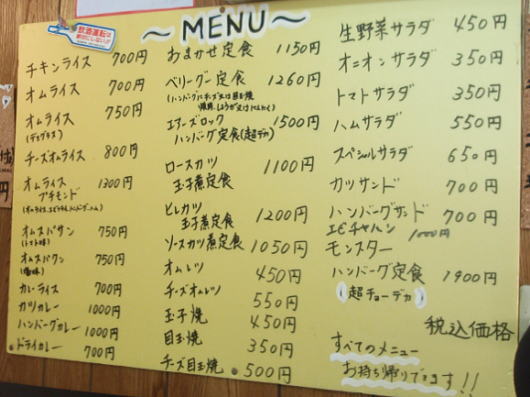 ～MENU～
チキンライス 700円
オムライス 700円
オムライス 750円
(デミグラス)
チーズオムライス 800円
オムライス 1300円
プチモンド
オムスパサン 750円
(トマト味)
オムスパワン 750円
カレーライス 700円
カツカレー 1000円
ハンバーグカレー 1000円
ドライカレー 700円
おまかせ定食 1150円
ベリーグー定食 1260円
エアーズロック 1500円
ハンバーグ定食(超デカ)
ロースカツ 1100円
玉子煮定食
ヒレカツ 1200円
玉子煮定食
ソースカツ煮定食 1050円
オムレツ 450円
チーズオムレツ 550円
玉子焼 450円
目玉焼 350円
チーズ目玉焼 500円
生野菜サラダ 450円
オニオンサラダ 350円
トマトサラダ 350円
ハムサラダ 550円
スペシャルサラダ 650円
カツサンド 700円
ハンバーグサンド 700円
エビチャハン 1000円
モンスター
ハンバーグ定食 1900円
(超チョーデカ)
税込価格
すべてのメニュー
お持ち帰りできます!!